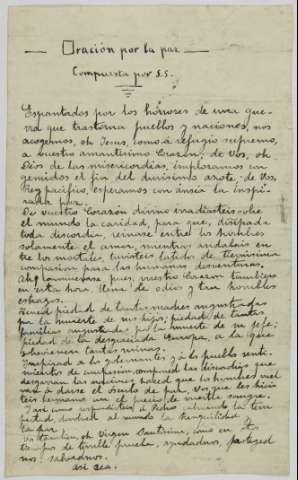 Oración por la paz
Compuesta por S.S.
Espantados por los horrores de una gue-
rra que trastorna pueblos y naciones, nos
acogemos, oh Jesus, como á refugio supremo,
a vuestro amantísimo Corazón; de Vos, oh
Dios de las misericordias, imploramos con
gemidos el fin del durísimo azote; de Vos,
Rey pacífico, esperamos con ánsia la suspi-
rada paz.
De vuestro Corazón divino irradiásteis sobre
el mundo la caridad, para que, disipada
toda discordia, reinase entre los hombres
solamente el amor, mientras andabais en
tre los mortales, tuvisteis latidos de tiernísima
compasion para las humanas desventuras.
Ah! pues, vuestro Corazon tambien
en esta hora llena de odios y tan horribles
estragos.
Tened piedad de tantas madres angustiadas
por la muerte de sus hijos; piedad de tantas
familias por la muerte de su jefe;
piedad de la desgraciada Europa, a la que
tantas ruinas.
Inspirad a los gobernantes y á los pueblos senti-
mientos de compasión, componed las discordias que
desgarran las naciones; haced que los hombres vuel
van á darse el ósculo de paz, Vos que les hicis
teis hermanos con el precio de vuestra sangre.
Y asi como Pedro la tem
pestad, al mundo la tranquilidad
la paz.
oh Virgen Santísima, como en
tiempos de terrible prueba, ayudadnos, proteged
nos, salvadnos.
Asi sea.